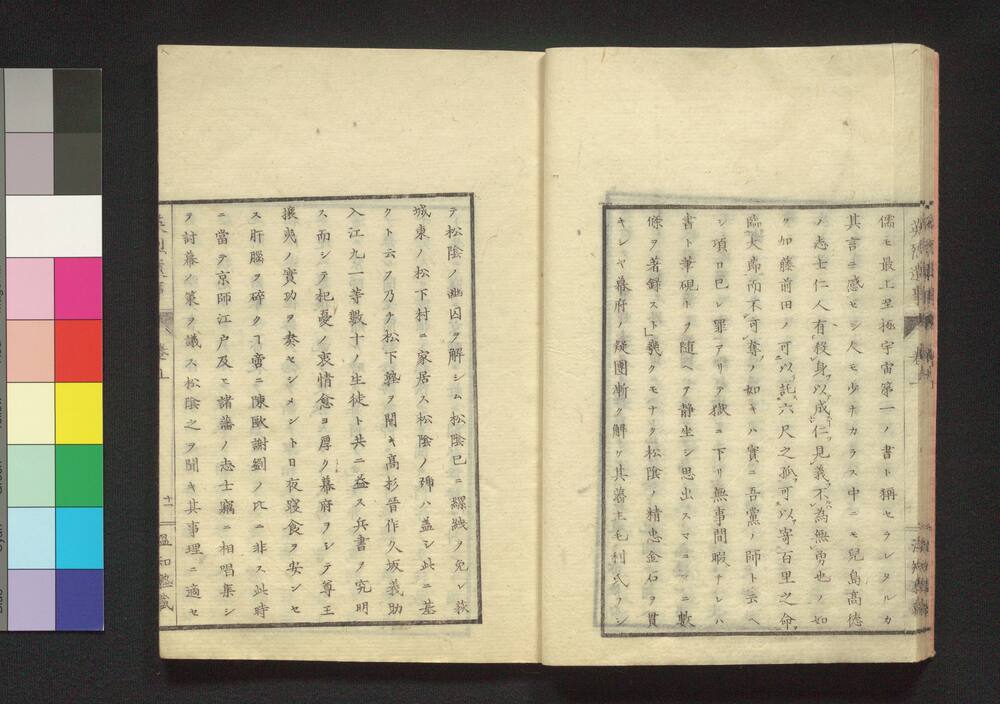 儒モ最上至極宇宙第一ノ書ト稱セラレタルカ
其言ニ感セシ人モ少ナカラス中ニモ兒島高德
ノ志士仁人有殺身以成仁見義不為無勇也ノ如
ク加藤前田ノ可以託六尺之孤可以寄百里之命
臨大節而不可奪ノ如キハ實ニ吾黨ノ師ト云ヘ
シ項日已レ罪アリテ獄ニ下リ無事間暇ナレハ
書ト筆硯トヲ随ヘテ静坐シ思出スマヽニ數
條ヲ著録スト羲クモナク松陰ノ精忠金石ヲ貫
キシヤ幕府ノ疑團漸ク解ケ其藩主毛利氏ヲシ
テ松陰ノ幽囚ヲ解シム松陰已ニ縲紲ヲ免レ萩
城東ノ松下村ニ家居ス松陰ノ號ハ蓋シ此ニ基
クト云フ乃チ松下塾ヲ開キ高杉晉作久坂義助
入江九一等數十ノ生徒ト共ニ益ス兵書ヲ究明
ス而シテ杞憂ノ衷情愈ヨ厚ク幕府ヲシテ尊王
攘夷ノ實功ヲ奏セシメント日夜寢食ヲ安ンセ
ス肝腦ヲ碎クヿ啻ニ陳歐謝劉ノ比ニ非ス此時
ニ當テ京師江戸及ヒ諸藩ノ志士竊ニ相唱集シ
テ討幕ノ策ヲ議ス松陰之ヲ聞キ其事理ニ適セ
十一
温知塾藏